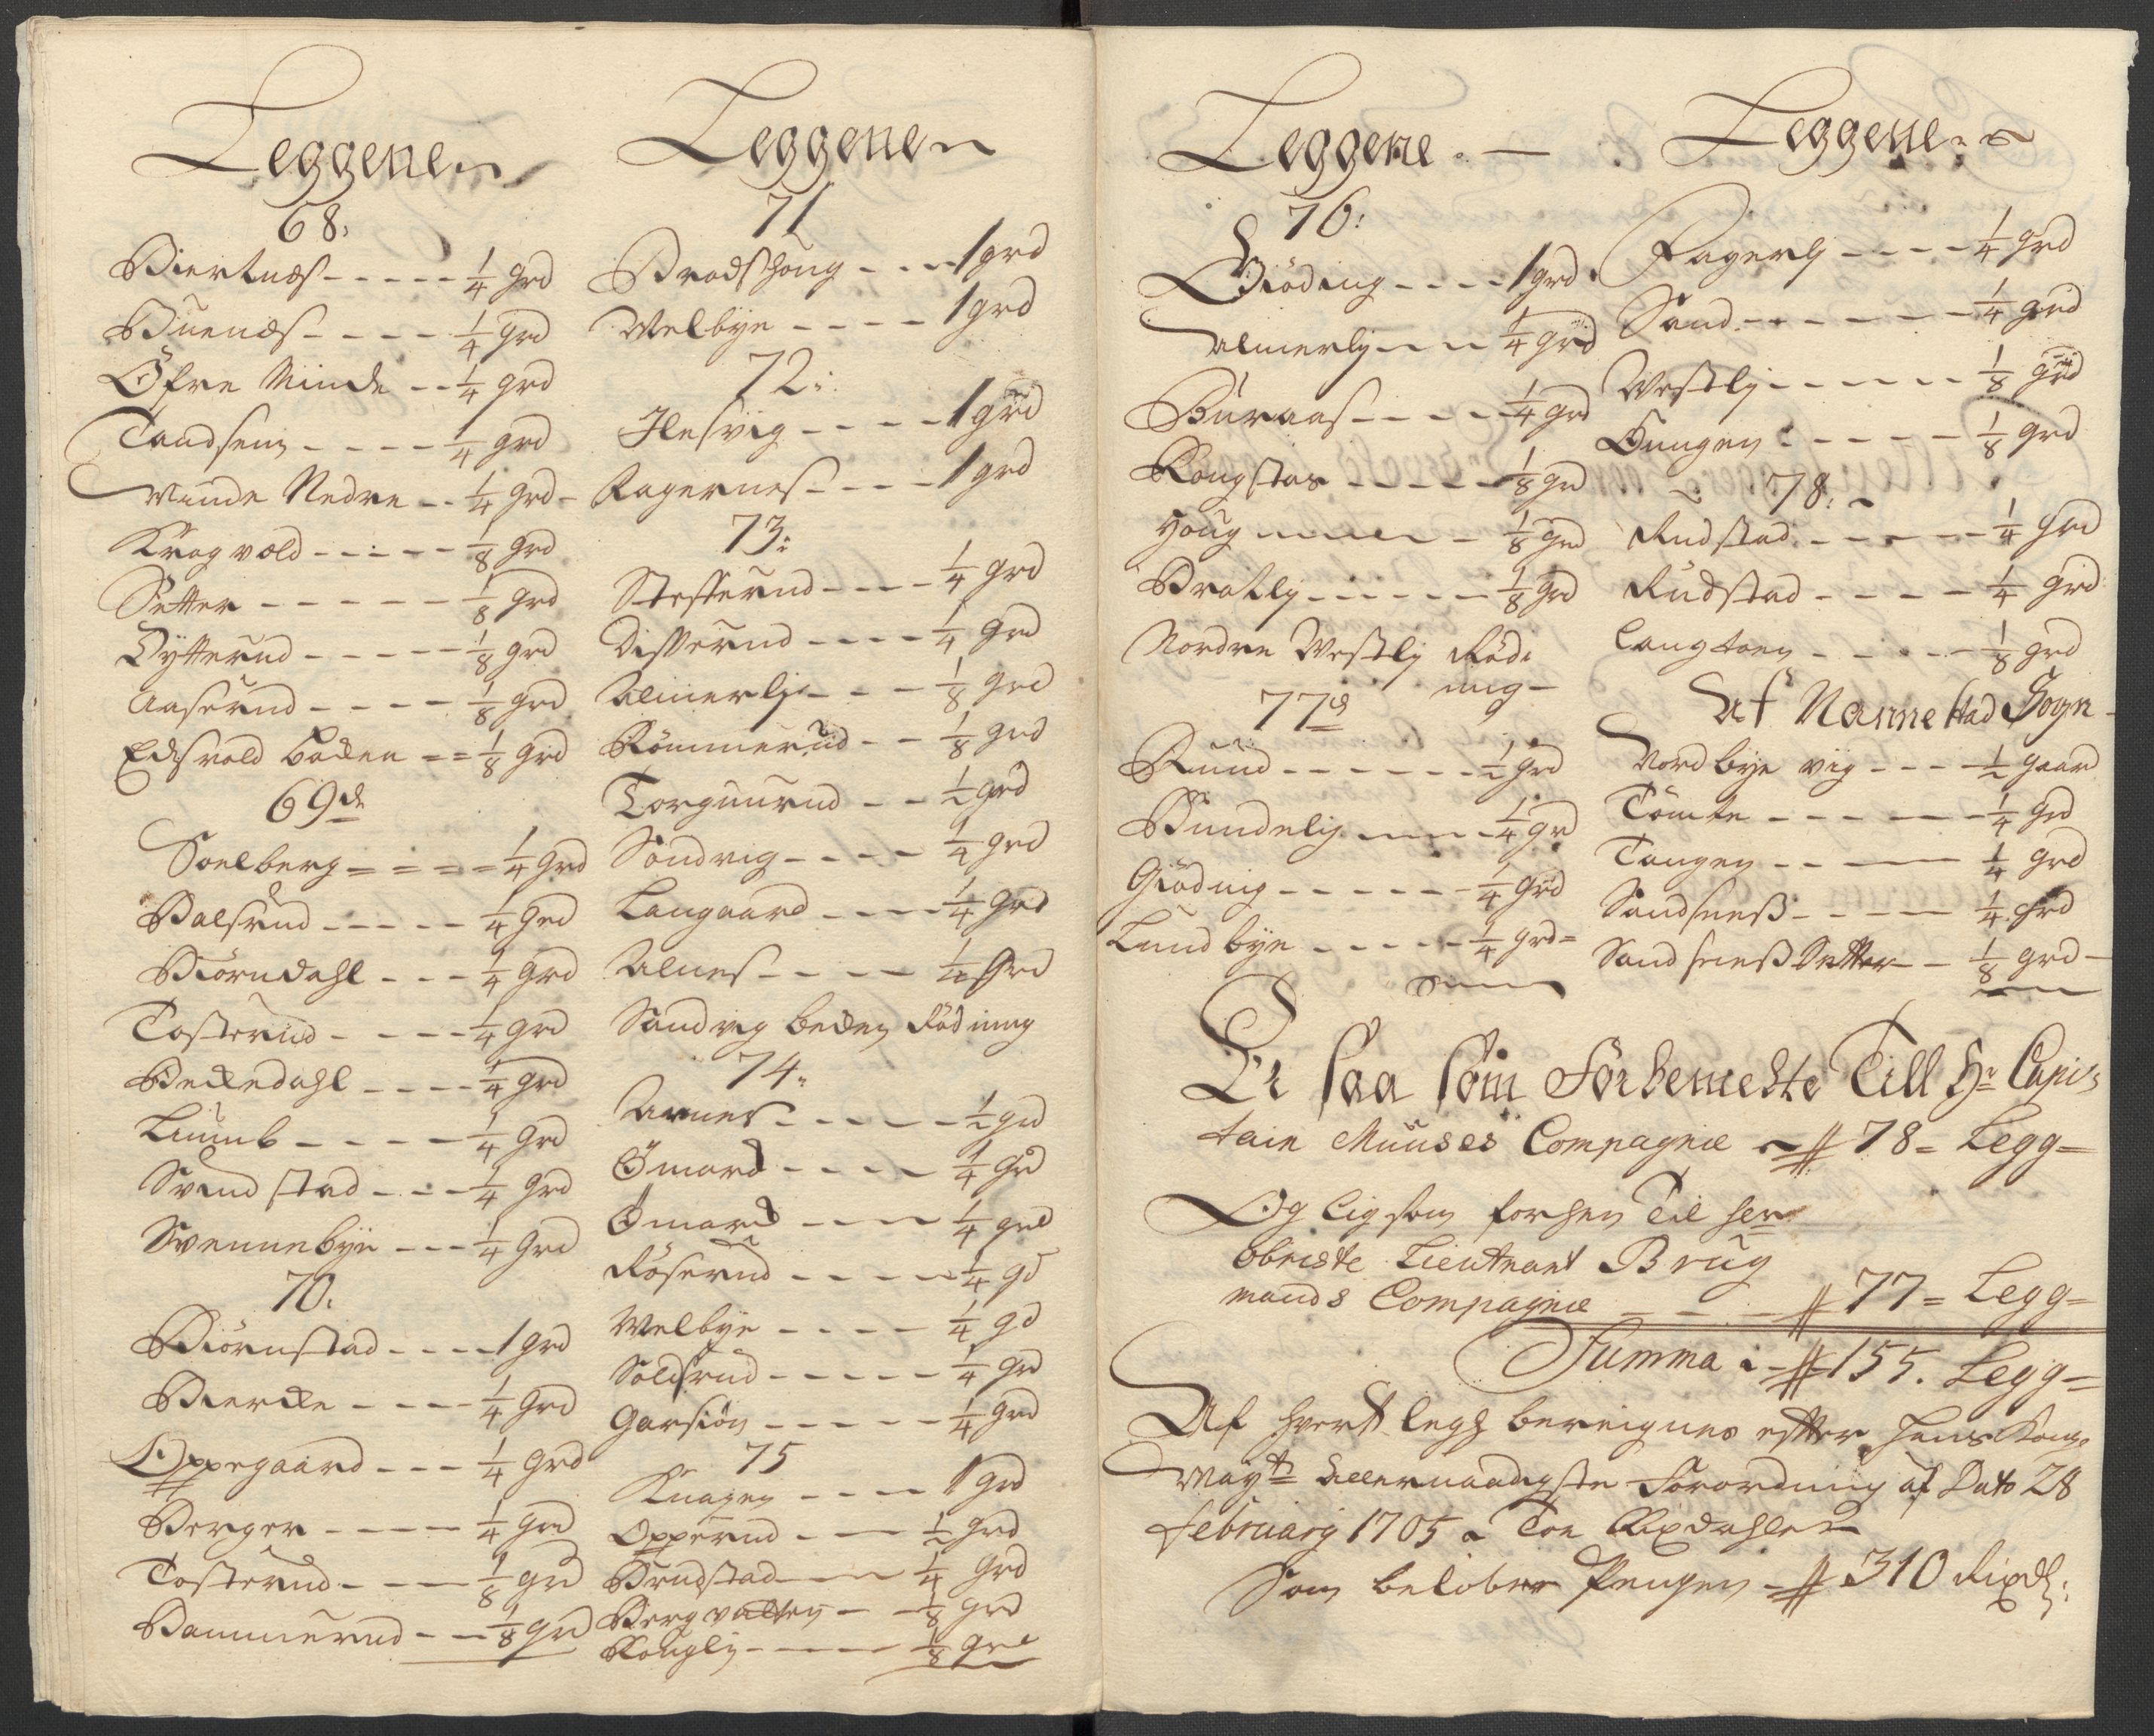 Leggene
68:
Biertnæs - - - - - 1/4 grd
Buenæs - - - - 1/4 grd
Öfre Minde - - 1/4 grd
Tandsem - - - - 1/4 grd
Minde Nedre - - 1/4 grd -
Krogvold - - - - - 1/8 grd
Setter - - - - - 1/8 grd
Bytterud - - - - - 1/8 grd
Aaserud - - - - 1/8 grd
Edsvold backen = = 1/8 grd
69de
Soelberg = = = = 1/4 grd
Balsrud - - - - - 1/4 grd
Biörndahl - - - 1/4 grd
Tosterud - - - - 1/4 grd
Beckedahl - - - - 1/4 grd
Luumb - - - - 1/4 grd
Svend stad - - - 1/4 grd
Svennebye - - - 1/4 grd
70.
Biörnstad - - - - 1 grd
Biercke - - - - 1/4 grd
Oppegaard - - - 1/4 grd
Berger - - - - 1/4 grd
Tosterud - - - 1/8 grd
Dammerud - - 1/8 grd
Leggene
71
Brodshoug - - - 1 grd
Melbye - - - - 1 grd
72:
Ilesvig - - - - 1 grd
Fagernes - - - - 1 grd
73:
Stesserud - - - - 1/4 grd
Disserud - - - - 1/4 grd
Almerlj - - - 1/8 grd
Römmerud - - 1/8 grd
Torgunrud - - 1/2 grd
Sandvig - - - - 1/4 grd
Langaard - - - - 1/4 grd
Alnes - - - - 1/4 grd
Sandvig becken Röd ning
74.
Arnes - - - - - 1/2 grd
Ömord - - - - 1/4 grd
Ömord - - - - 1/4 grd
Röserud - - - - 1/4 gd
Melbye - - - - 1/4 gd
Soldsrud - - - - - 1/4 grd
Garsiön - - - - - 1/4 grd
75
Knagen - - - - 1 grd
Opperud - - - 1/2 grd
Brudstad - - - 1/4 grd
Berg valten - - 1/8 grd
Rouglj - - - - 1/8 grd
Leggene. -
76:
Giöding - - - - 1 grd.
Almerlj - - - 1/4 grd
Buraas - - - - 1/4 grd
Rougstas - - - - 1/8 grd
Houg - - - - 1/8 grd
Bratlj - - - - - 1/8 grd
Nordre Westlj Rödi
ning -
77de
Ruud - - - - - - 1/2 grd
Bundelj - - - - 1/4 gr
Giöding - - - - - 1/4 grd
Lundbye - - - - - 1/4 grd =
Leggene
Fagerlj - - - - 1/4 grd
Sand - - - - - - 1/4 grd
Westlj - - - - - 1/8 grd
Tungen - - - - 1/8 grd
78:
Rudstad - - - - - 1/4 grd
Rudstad - - - - 1/4 grd
Langtoen - - - - - 1/8 grd
Af Nannestad Sogn -
Nordbye vig - - - - 1/2 gaard
Tömte - - - - - 1/4 grd
Tangen - - - 1/4 grd
Sandsneß - - - - 1/4 grd
Sandsneß Setter - - 1/8 grd -
Er saa som Forbemelte Till Hr Capi-
tain Muuses Compagnie # 78 = Legg =
Og ligsom forhen Til her
obriste Lieutnant Brug
mands Compagnie - - - # 77 = Legg =
Summa - # 155. Legg =
Af hvert legg bereignes efter hans Kong.
Mayts allernaadigste Forordning af Dato 28
februarij 1705 a Toe Rixdahler
Som beløber Pengen - # 310 Rixdl: